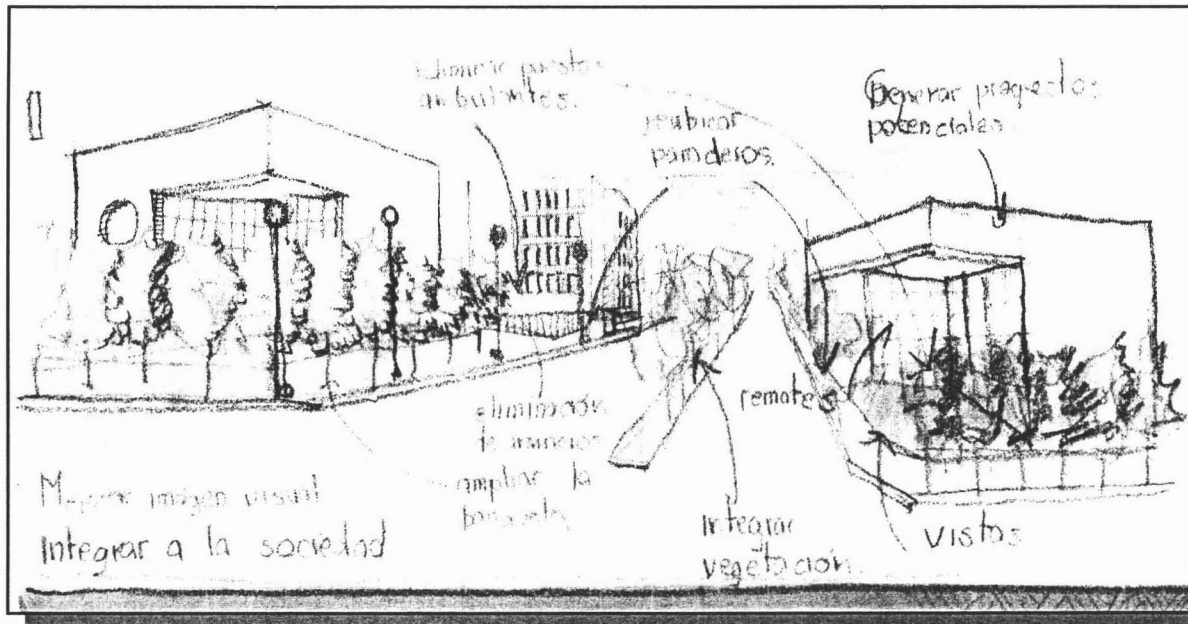 Eliminar puestos
ambulantes.
reubicar
paraderos.
Generar proyectos
potenciales.
eliminación
de anuncios
remates
ampliar la
banqueta
Mejorar imagen visual
Integrar a la sociedad
Integrar
vegetación.
vistas